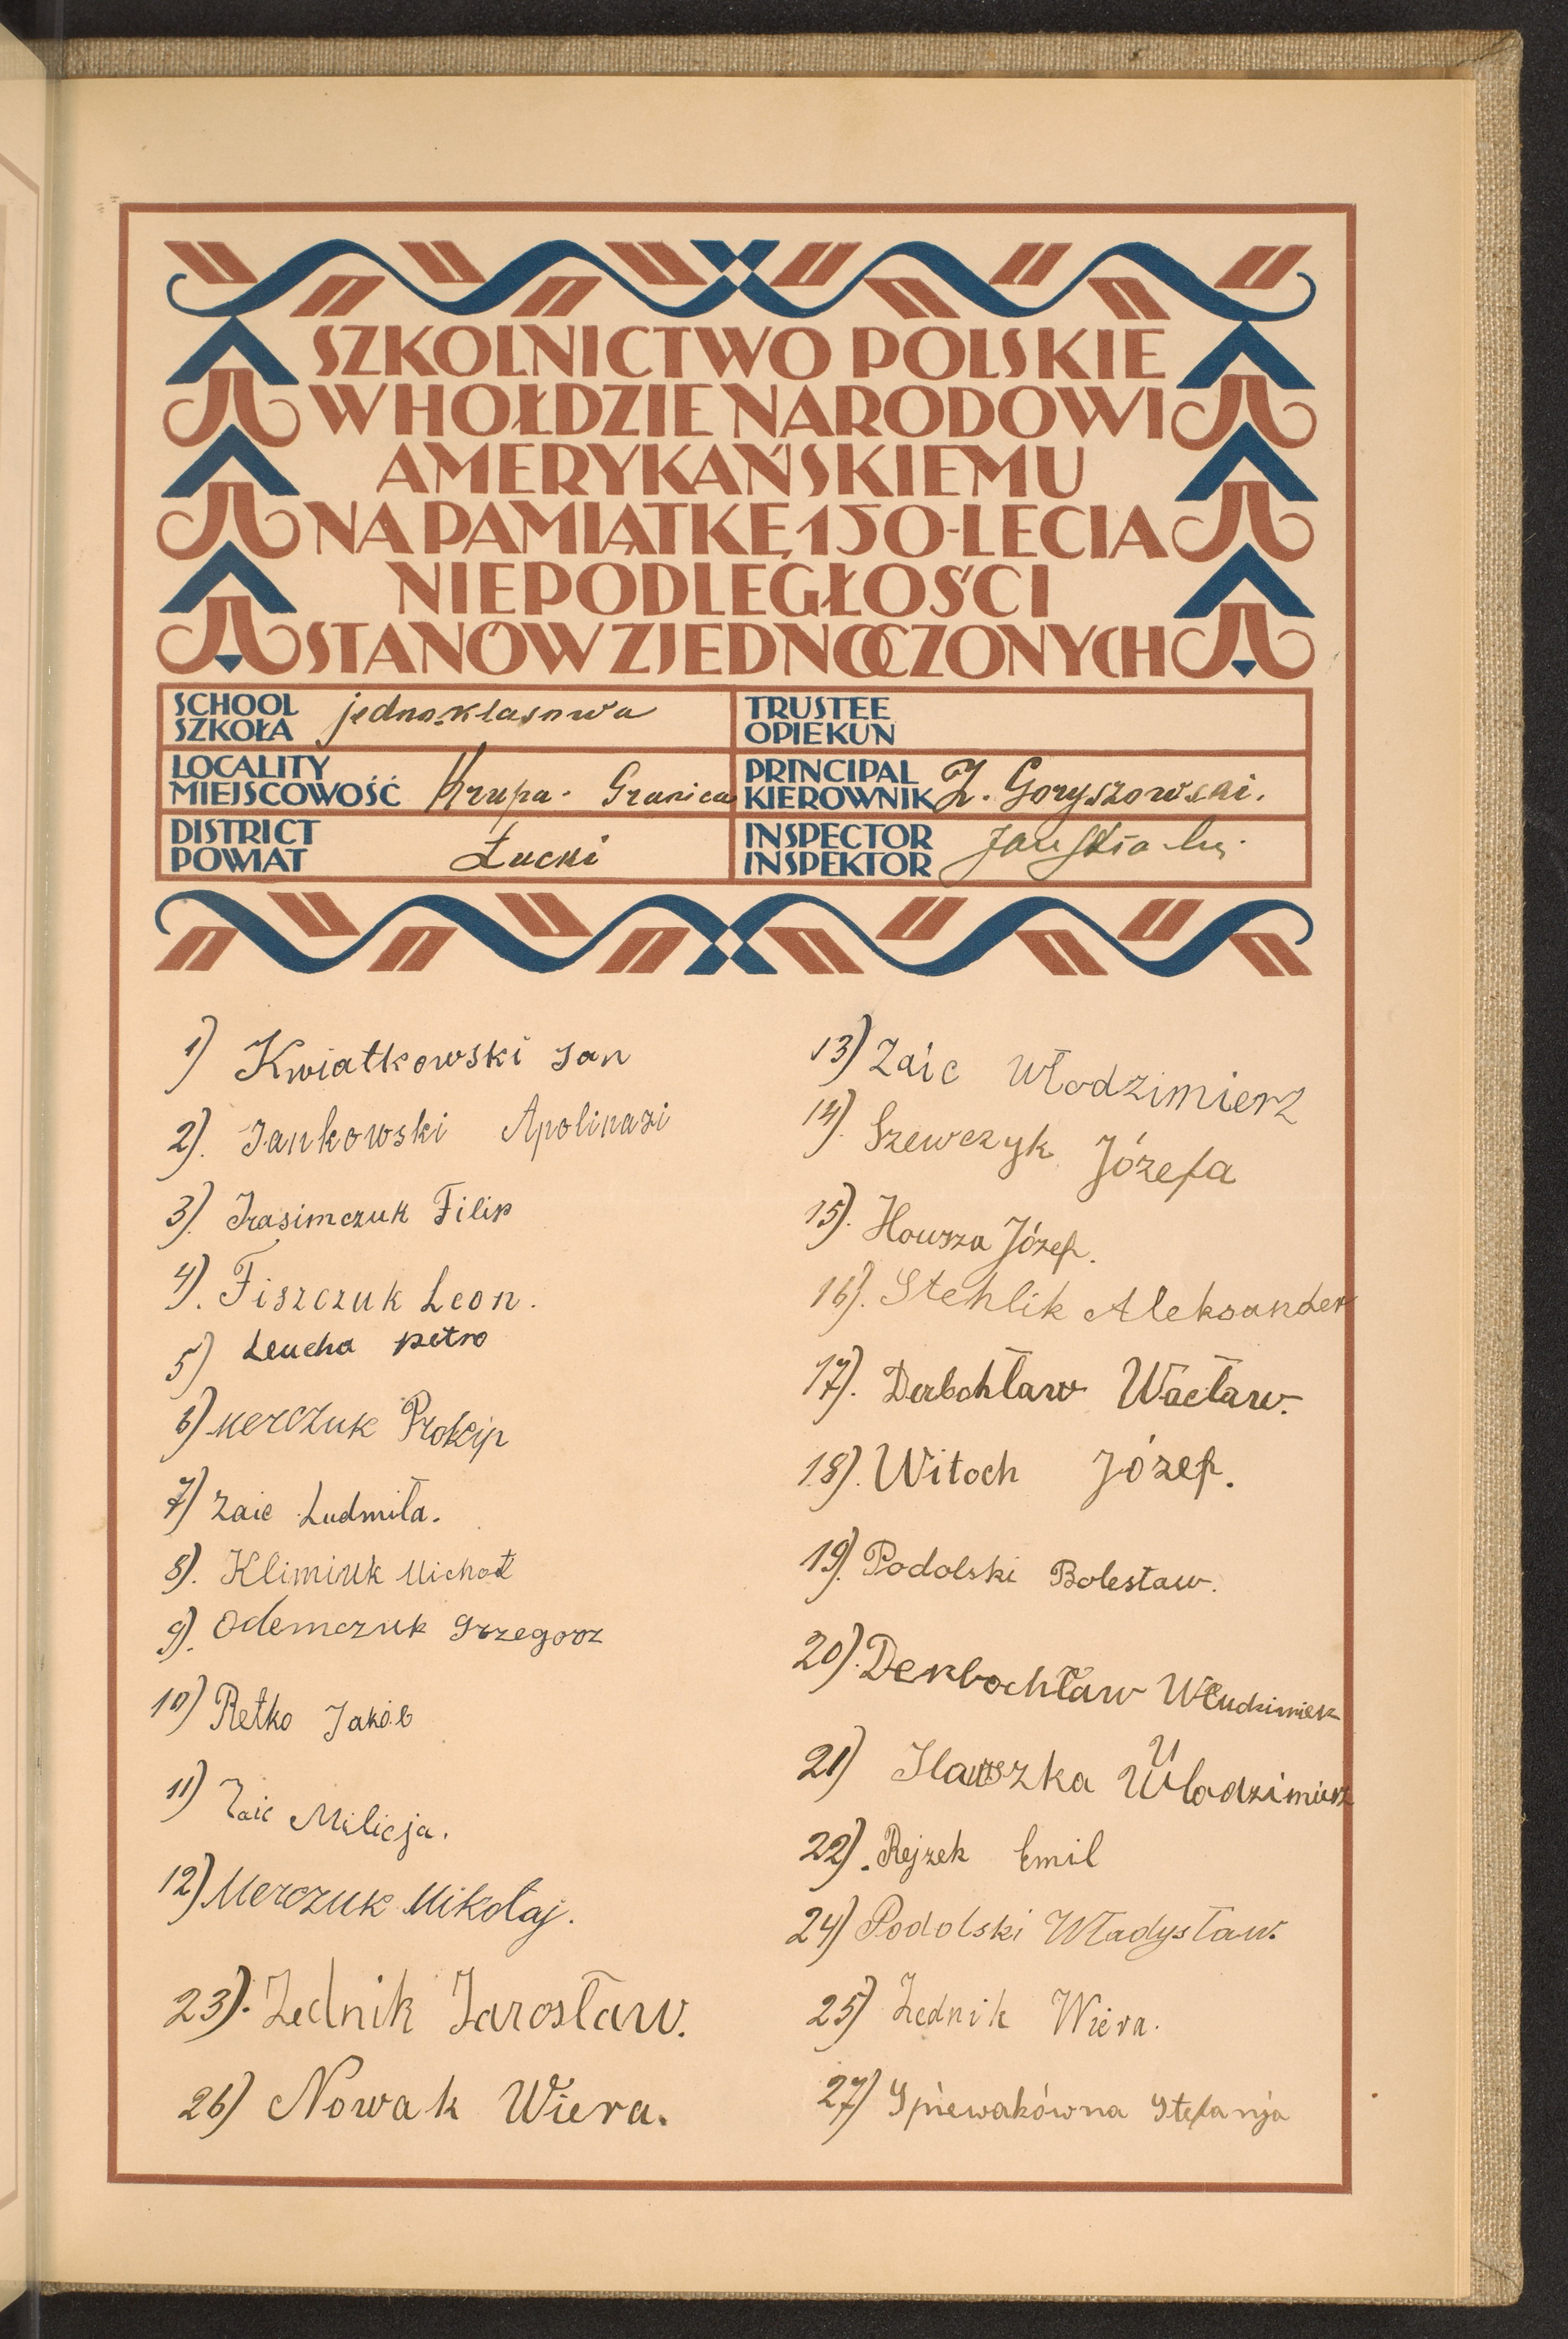 SZKOLNICTWO POLSKIE
W HOŁDZIE NARODOWI
AMERYKAŃSKIEMU
NA PAMIĄTKĘ 150-LECIA
NIEPODLEGŁOŚCI
STANÓW ZJEDNOCZONYCH
SCHOOL
SZKOŁA jednoklasowa
TRUSTEE
OPIEKUN
LOCALITY
MIEJSCOWOŚĆ Krupa - Granica
PRINCIPAL
KIEROWNIK Z. Goryszowski.
DISTRICT
POWIAT Łucki
INSPECTOR
INSPEKTOR Jan
1) Kwiatkowski Jan
2). Jankowski Apolinari
3). Irasimczuk Filip
4). Fiszczuk Leon.
5) Leucha Petro
6) Merczuk Prokip
7) Zaic Ludmiła.
8). Klimiuk Michał
9). Odemczuk Grzegorz
10) Retko Jakób
11) Zaic Milicja.
12) Merczuk Mikołaj.
23). Zednik Jarosław.
26) Nowak Wiera.
13) Zaic Włodzimierz
14). Szewczyk Józefa
15). Howsza Józef.
16). Stehlik Aleksander
17). Derbchław Wacław.
18). Witoch Józef.
19). Podolski Bolesław.
20). Derbochław Włudzimierz
21) Włodzimierz
22). Rejzek Emil
24) Podolski Władysław.
25) Zednik Wiera.
27) Spiewakówna Stefanja